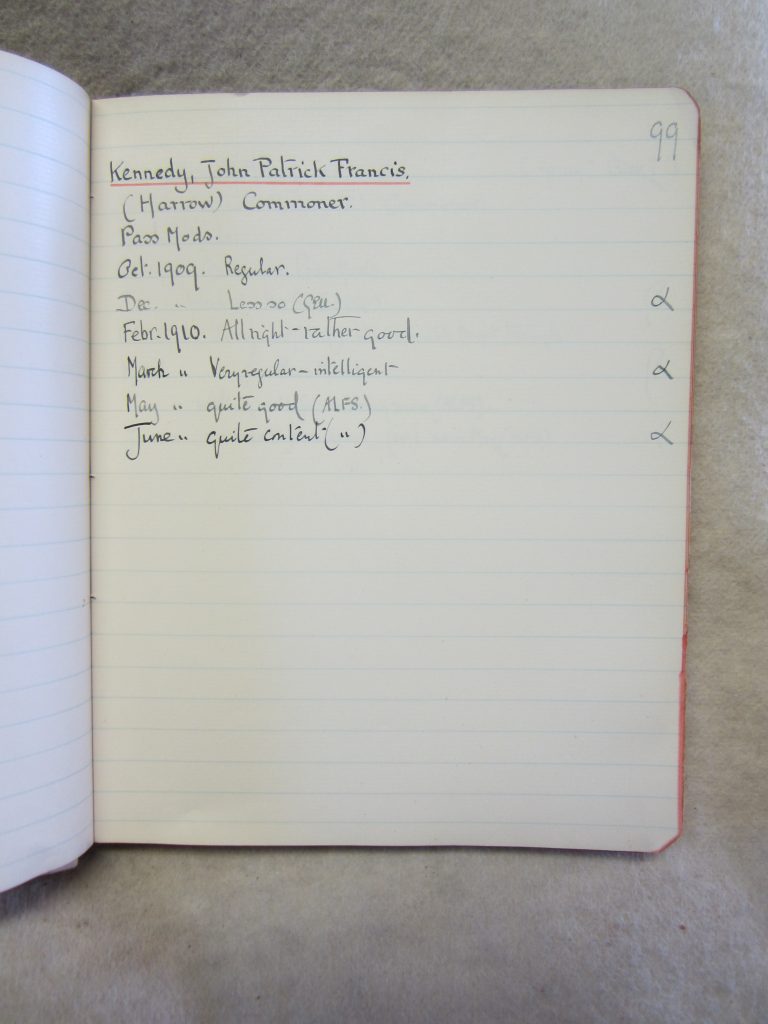 99
Kennedy, John Patrick Francis.
(Harrow) Commoner.
Pass Mods.
Oct. 1909. Regular.
Dec. " Less so (GEU.) α
Febr. 1910. All right - rather good.
March " Very regular - intelligent α
May " quite good (ALFS.)
June " quite content (") α